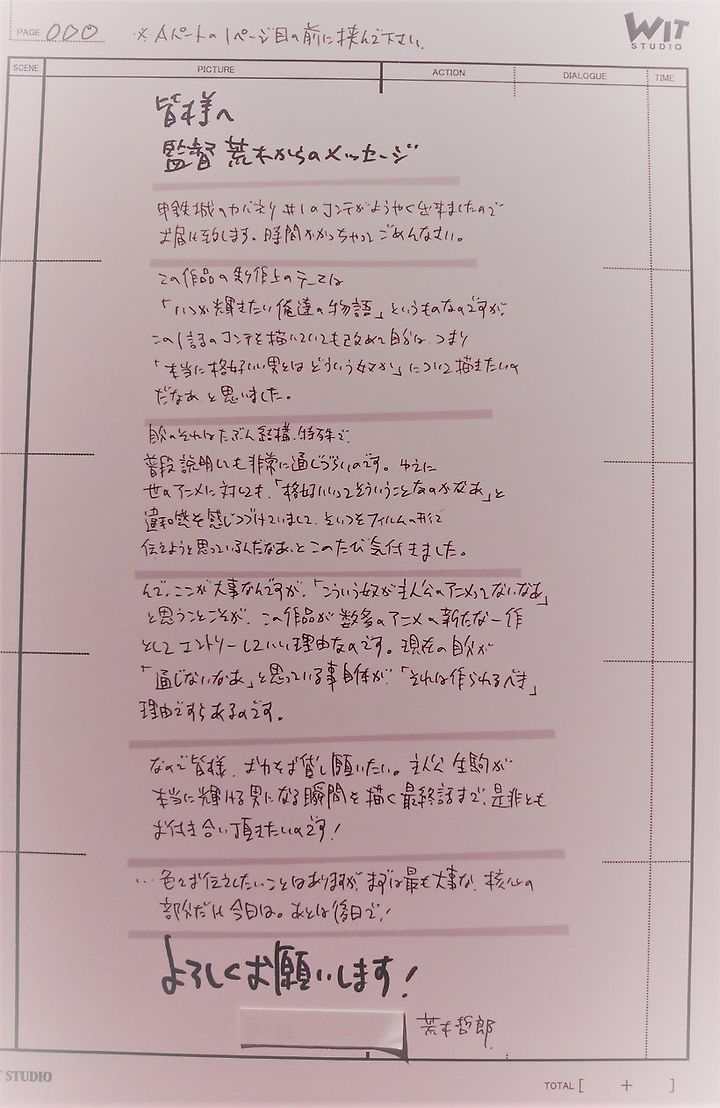 PAGE 000 ※Aパートの1ページ目の前に挟んで下さい。
WIT
STUDIO
SCENE PICTURE ACTION DIALOGUE TIME
皆様へ
監督 荒木からのメッセージ
甲鉄城のカバネリ #1のコンテがようやく出来ましたので
お届け致します。時間かかっちゃってごめんなさい。
この作品の制作上のテーマは
「いつか輝きたい俺達の物語」というものなのですが、
この1話のコンテを描いていても改めて自分は、つまり
「本当に格好いい男とはどういう奴か」について描きたいの
だなあ と思いました。
自分のそれはたぶん結構、特殊で、
普段説明しても非常に通じづらいのです。ゆえに
世のアニメに対しても、「格好いいってそういうことなのかなあ」と
違和感を感じつづけていまして、そいつをフィルムの形で
伝えようと思っているんだなあ、とこのたび気付きました。
んで、ここが大事なんですが、「こういう奴が主人公のアニメってないなあ」
と思うことこそが、この作品が数多のアニメの新たな一作
としてエントリーしていい理由なのです。現在の自分が
「通じないなあ」と思っている事自体が、「それは作られるべき」
理由ですらあるのです。
なので皆様、お力をお貸し願いたい。主人公 生駒が
本当に輝ける男になる瞬間を描く最終話まで、是非とも
お付き合い頂きたいのです!
…色々お伝えしたいことはありますが、まずは最も大事な、核心の
部分だけ今日は。あとは後日で!
よろしくお願いします!
荒木哲郎
T STUDIO
TOTAL [ + ]